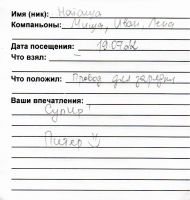 Имя (ник): Наташа
Компаньоны: Миша, Иван Лена
Дата посещения: 19.07.22
Что взял: –
Что положил: Провод для зарядки
Ваши впечатления:
Супер!
Питер :)